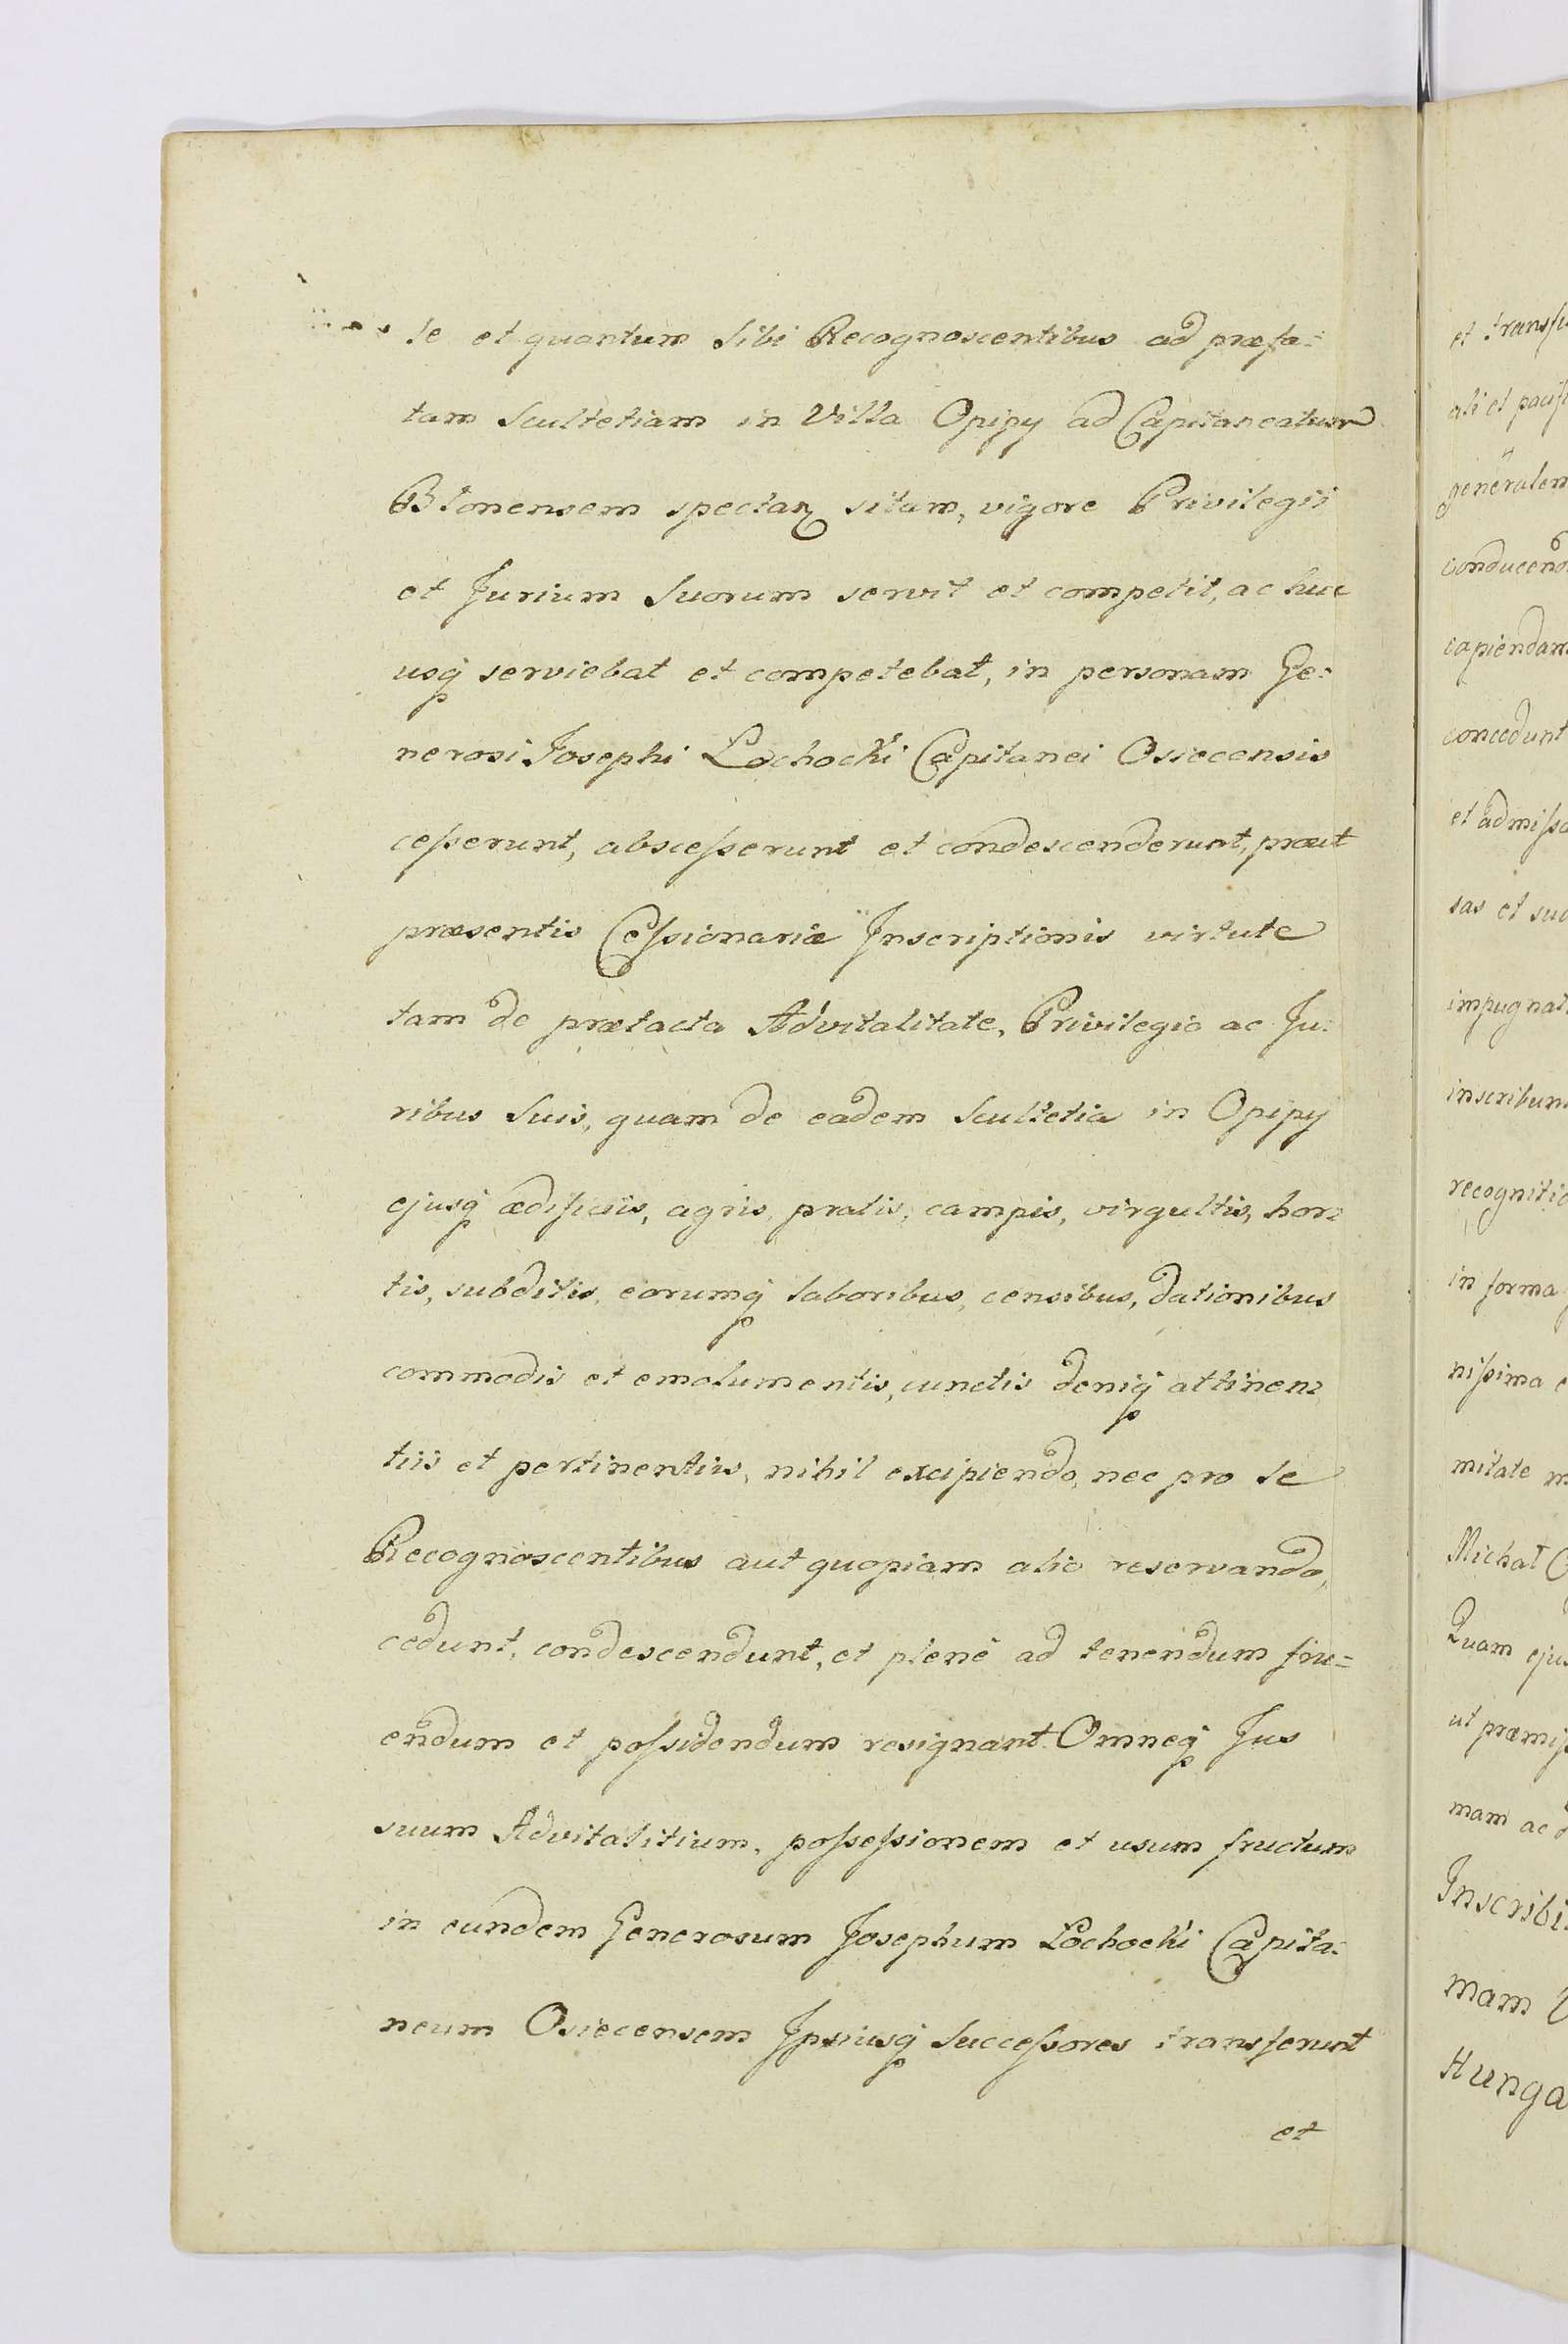 se et quantum Sibi Recognoscentibus ad præfa:
tam Scultetiam in Villa Opipy ad Capitaneatum
Błonensem spectan sitam, vigore Privilegii
et Jurium Suorum servit et competit, ac huc
usq serviebat et competebat, in personam Ge:
nerosi Josephi Łochocki Capitanei Osiecensis
cesserunt, abscesserunt et condescenderunt, prout
præsentis Cessionariæ Inscriptionis virtute
tam de prætacta Advitalitate, Privilegio ac Ju:
ribus Suis, quam de eadem Scultetia in Opipy
ejusq ædificiis, agris, pratis, campis, virgultis, hor:
tis, subditis, eorumq laboribus, censibus, dationibus
commodis et emolumentis, cunctis deniq attinen:
tiis et pertinentiis, nihil excipiendo, nec pro se
Recognoscentibus aut quopiam alio reservando,
cedunt, condescendunt, et plenè ad tenendum fru=
endum et possidendum resignant. Omneq Jus
suum Advitalitium, possessionem et usum fructum
in eundem Generosum Josephum Łochocki Capita:
neum Osiecensem Ipsiusq Successores transferunt
et
et transfu
ali et pacifi
generalem
conducendo
capiendam
concedunt
et admissa
sas et suc
impugnat
inscribun
recognitio
in forma
nissima
mitate m
Michał
Quam ejus
ut præmis
mam ac
Inscribi
mam
Hunga